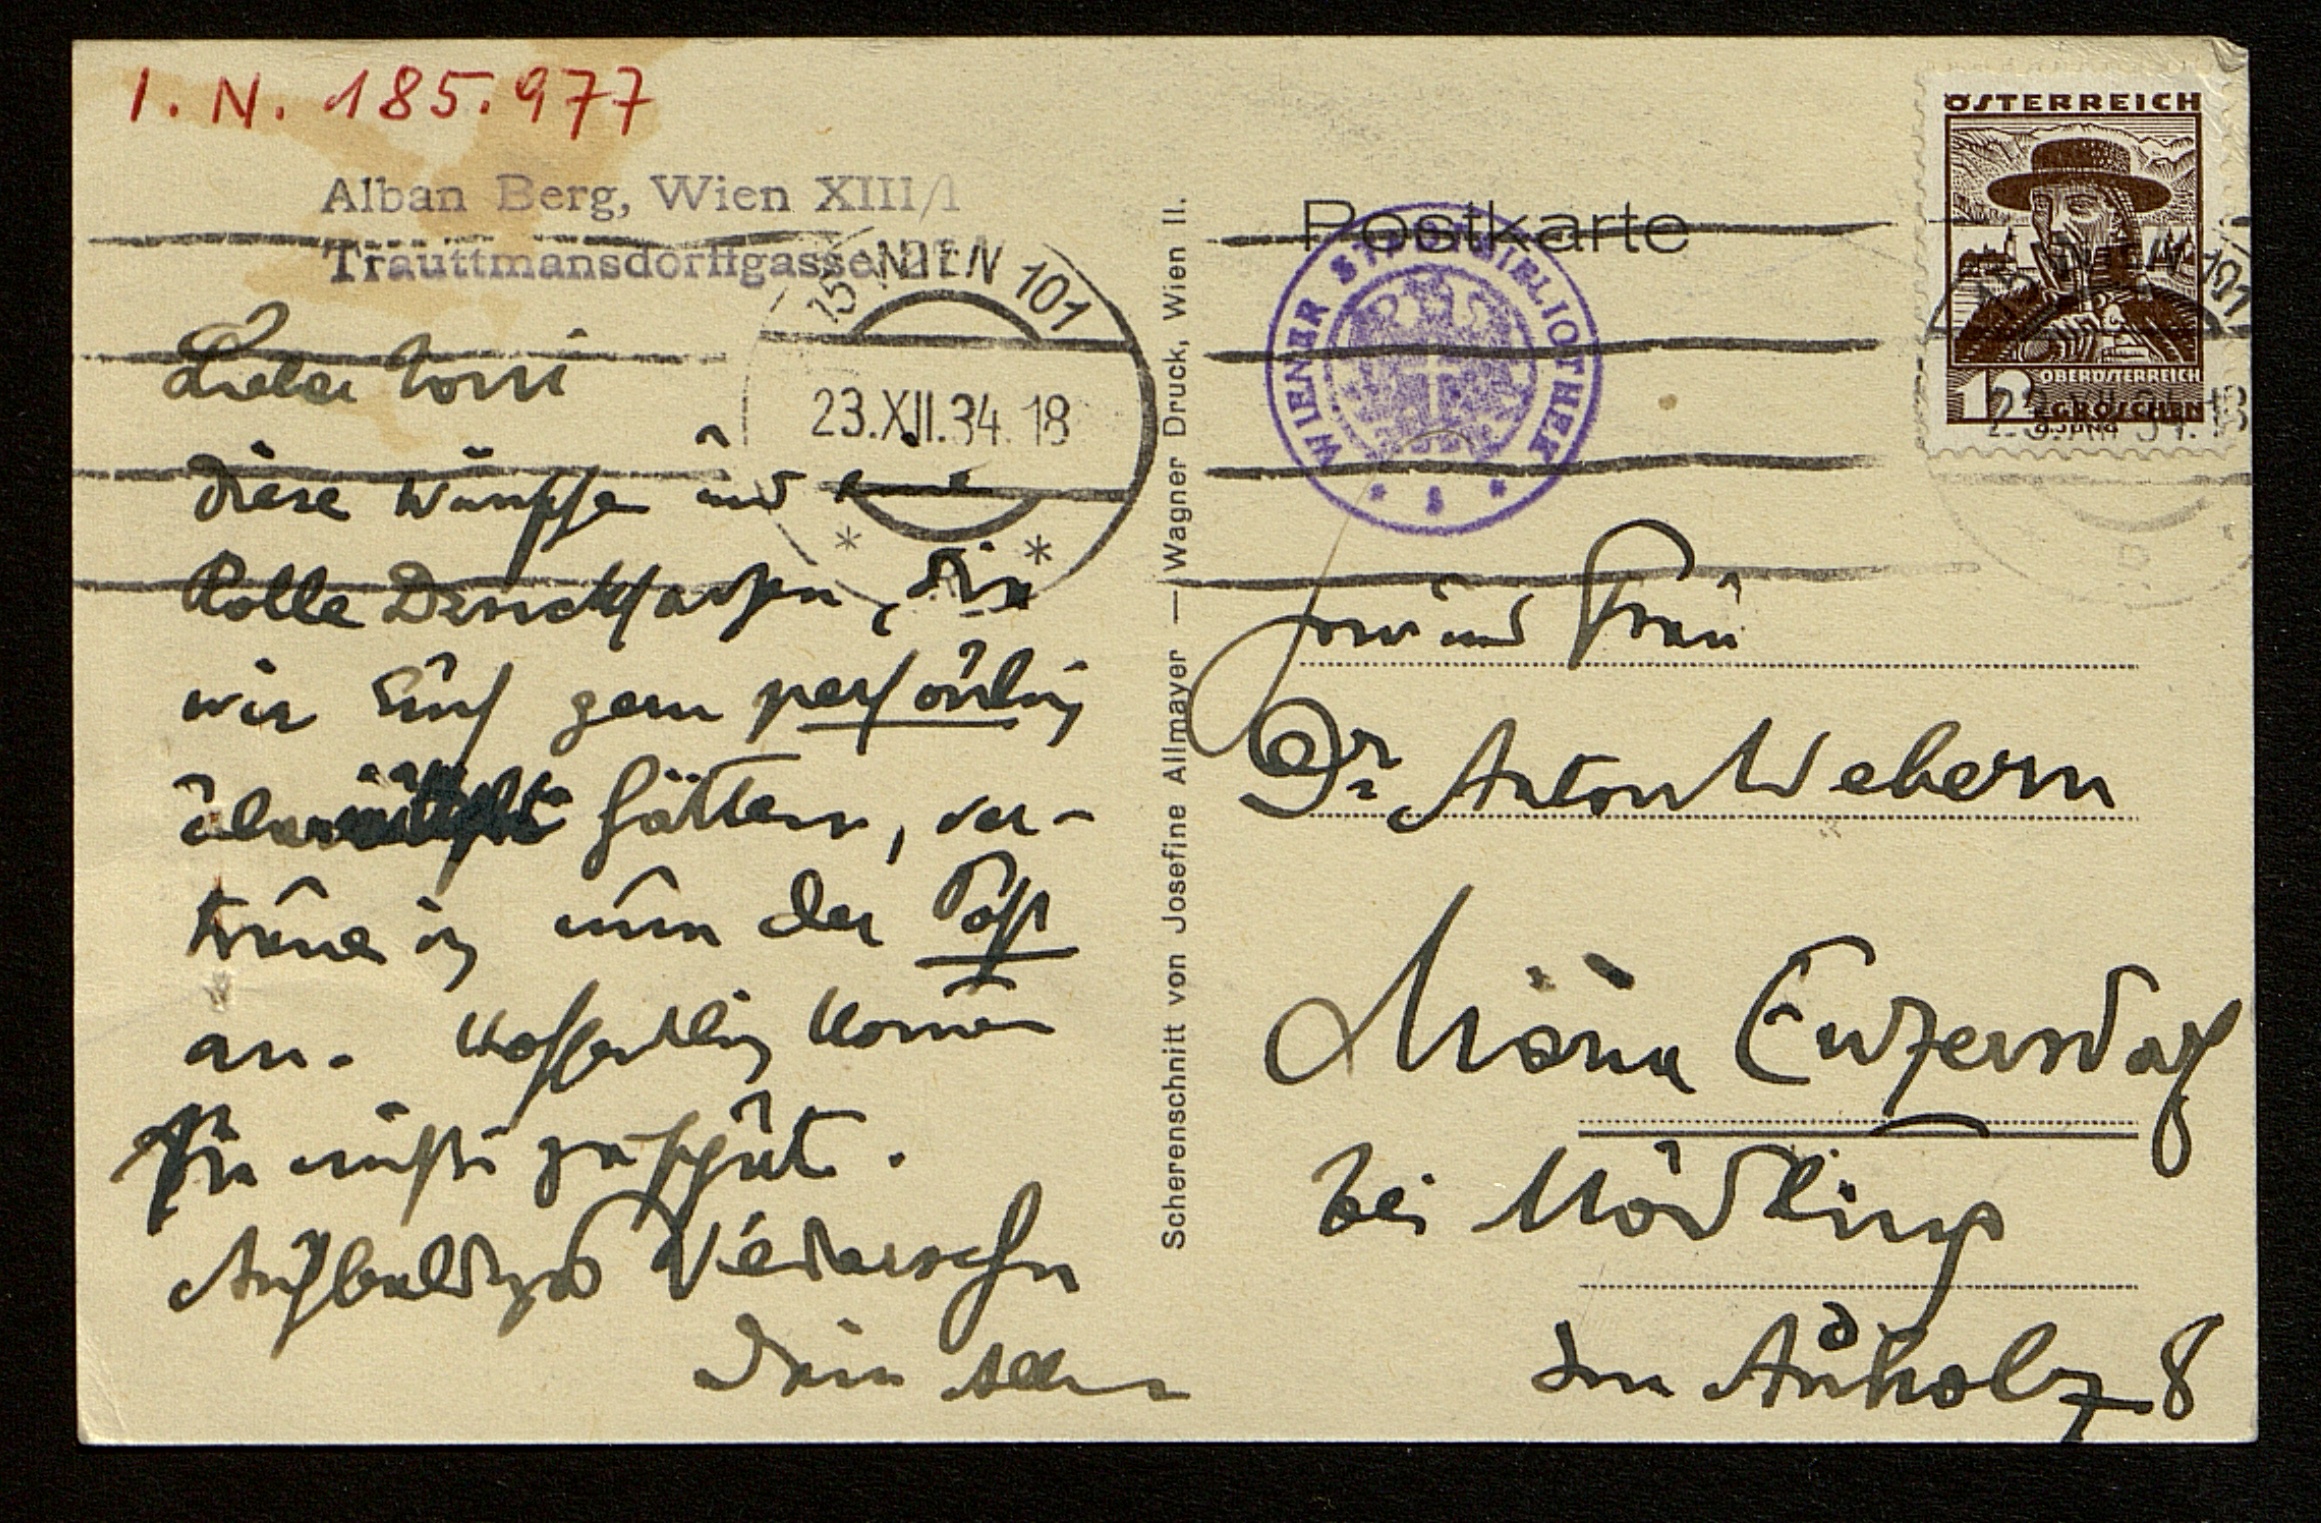 I. N. 185.977
Alban Berg, Wien XIII/1
Trauttmansdorffgasse 27
Lieber Toni
diese Wünsche und eine
Rolle Drucksachen, die
wir Euch gern persönlich
über hätten, ver-
traue ich nun der Post
an. Hoffentlich kommen
sie nicht zu spät.
Auf baldiges Wiedersehn
Dein Alban
15 WIEN 101
23.XII.34. 18
* *
Scherenschnitt von Josefine Allmayer — Wagner Druck, Wien II.
Postkarte
WIENER STADTBIBLIOTHEK
ÖSTERREICH
OBERÖSTERREICH
12 GROSCHEN
WIEN 101
23.XII.34. 18
und Frau
Dr Anton Webern
Maria Enzersdorf
bei Mödling
Im Auholz 8